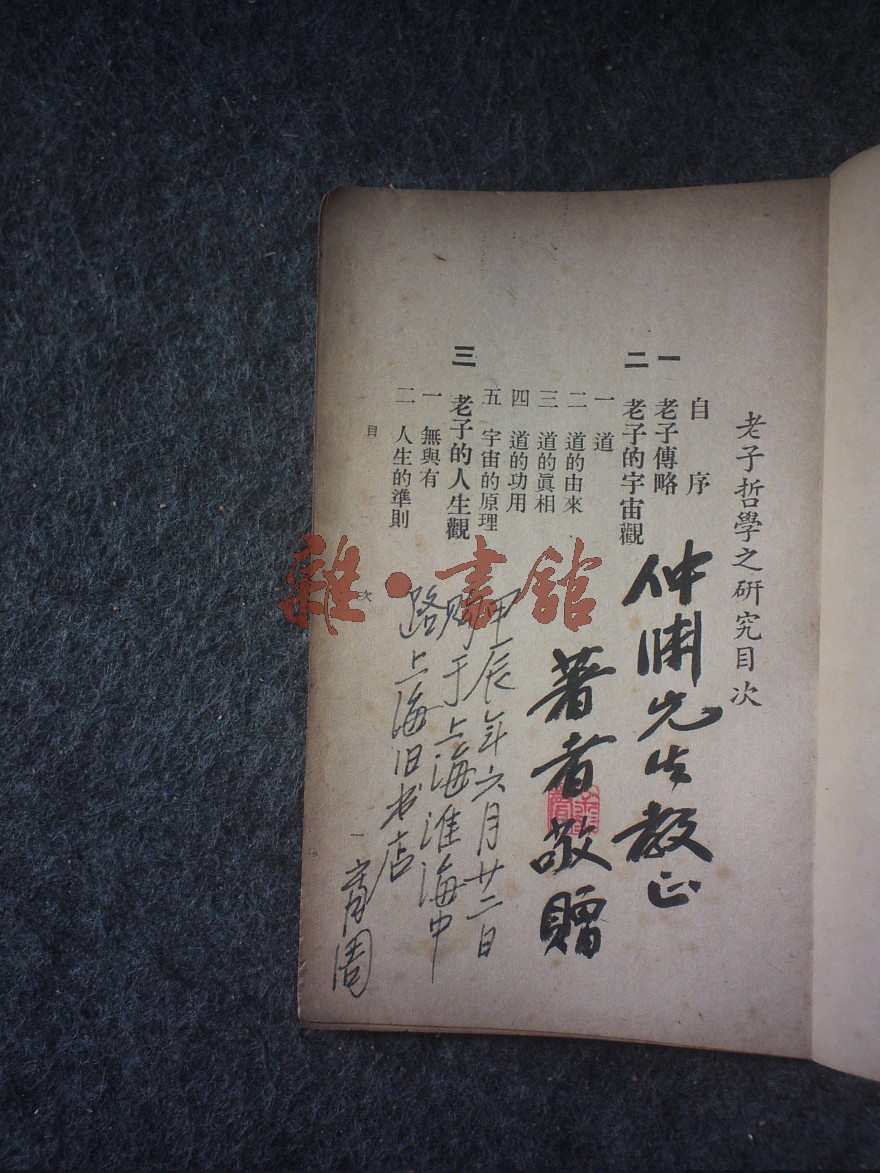 老子哲學之研究目次
自序
一 老子傳略
二 老子的宇宙觀
一 道
二 道的由來
三 道的眞相
四 道的功用
五 宇宙的原理
三 老子的人生觀
一 無與有
二 人生的準則
目次
一
仲開先生教正
著者敬贈
甲辰年六月廿二日
购于上海淮海中
路上海旧书店
育周
雜·書舘